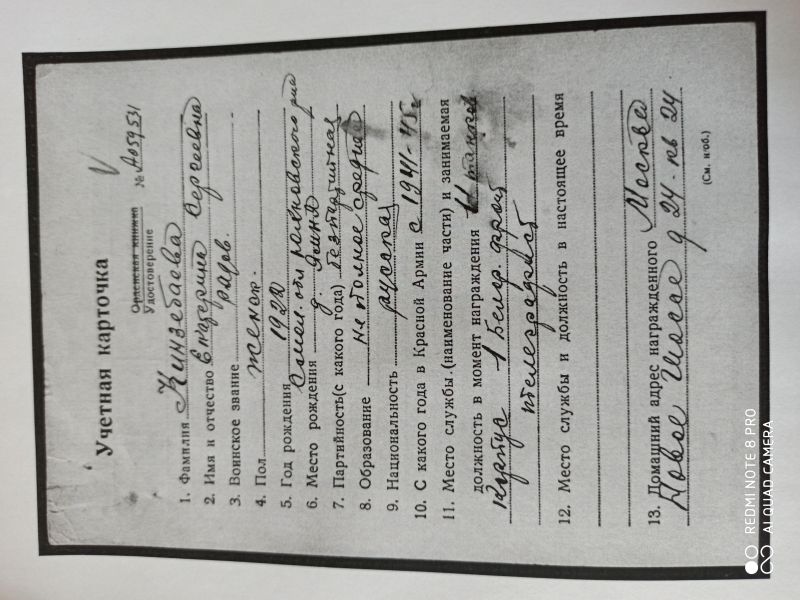 Учетная карточка
Орденская книжка
Удостоверение № А059531
1. Фамилия Кинзебаева
2. Имя и отчество Екатерина Сергеевна
3. Воинское звание рядов.
4. Пол женск.
5. Год рождения 1920
6. Место рождения Смол. обл
7. Партийность(с какого года) безпартийная
8. Образование не полное среднее
9. Национальность русская
10. С какого года в Красной Армии с 1941-45г
11. Место службы (наименование части) и занимаемая
должность в момент награждения 11 танков
Корпус 1 Белор. фронт
телеграфист
12. Место службы и должность в настоящее время
13. Домашний адрес награжденного Москва
Новое Шоссе д 24 кв 24
(См. н/об.)
REDMI NOTE 8 PRO
AI QUAD CAMERA